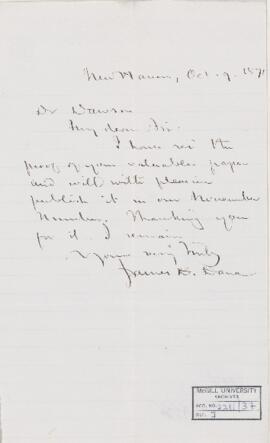 New Haven, Oct. 9. 1871
Dr Dawson
My dear Sir.
I have rec'd the
proof of your valuable paper
and will with pleasure
publish it in our November
Number. Thanking you
for it I remain
Yours very truly
James D. Dana
McGILL UNIVERSITY
ARCHIVES
ACC. NO. 2211 37
REF.